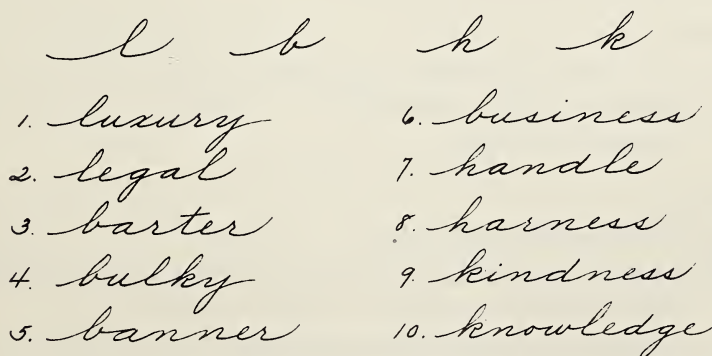 l b h k
1. luxury
2. legal
3. barter
4. bulky
5. banner
6. business
7. handle
8. harness
9. kindness
10. knowledge